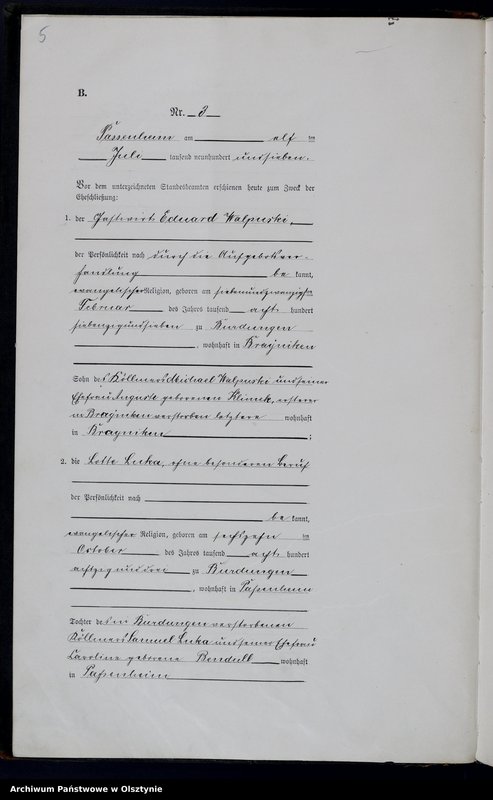 5
B.
Nr. 8
Passenheim am elf ten
Juli tausend neunhundert und sieben.
Vor dem unterzeichneten Standesbeamten erschienen heute zum Zweck der
Eheschließung:
1. der Gastwirt Eduard Walpuski,
der Persönlichkeit nach durch die Aufgebotsver-
handlung be kannt,
evangelischer Religion, geboren am siebenundzwanzigsten
Februar des Jahres tausend acht hundert
siebenzig und sieben zu Burdungen
, wohnhaft in Brayniken
Sohn des Köllmers Michael Walpuski und seiner
Ehefrau Auguste geborenen, ersterer
in Brayniken verstorben letztere wohnhaft
in Brayniken ;
2. die Lotte Luka, ohne besonderen Beruf
der Persönlichkeit nach
be kannt,
evangelischer Religion, geboren am sechszehn ten
October des Jahres tausend acht hundert
achtzig und drei zu Burdungen
, wohnhaft in Passenheim
Tochter des in Burdungen verstorbenen
Köllmers Samuel Luka und seiner Ehefrau
Caroline geborene wohnhaft
in Passenheim
Archiwum Państwowe w Olsztynie